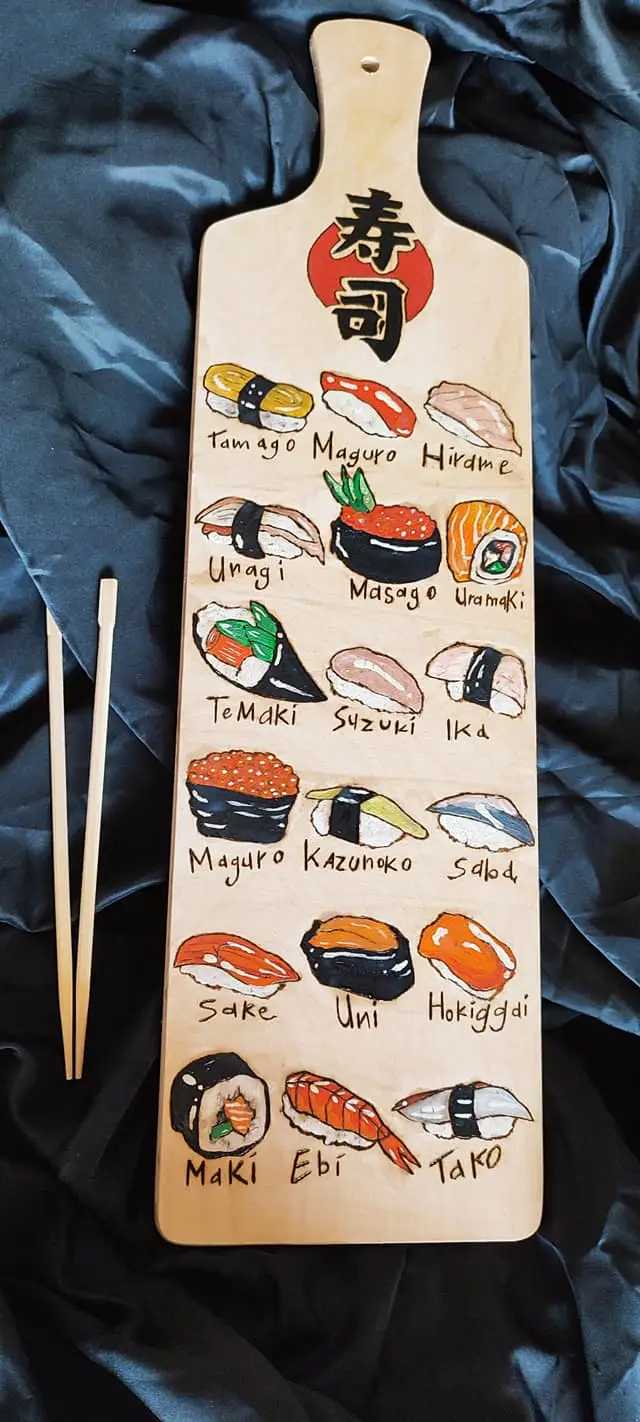 寿
司
Tamago Maguro Hirame
Unagi Masago Uramaki
TeMaki Suzuki Ika
Maguro Kazunoko Saba
Sake Uni Hokiggai
Maki Ebi Tako